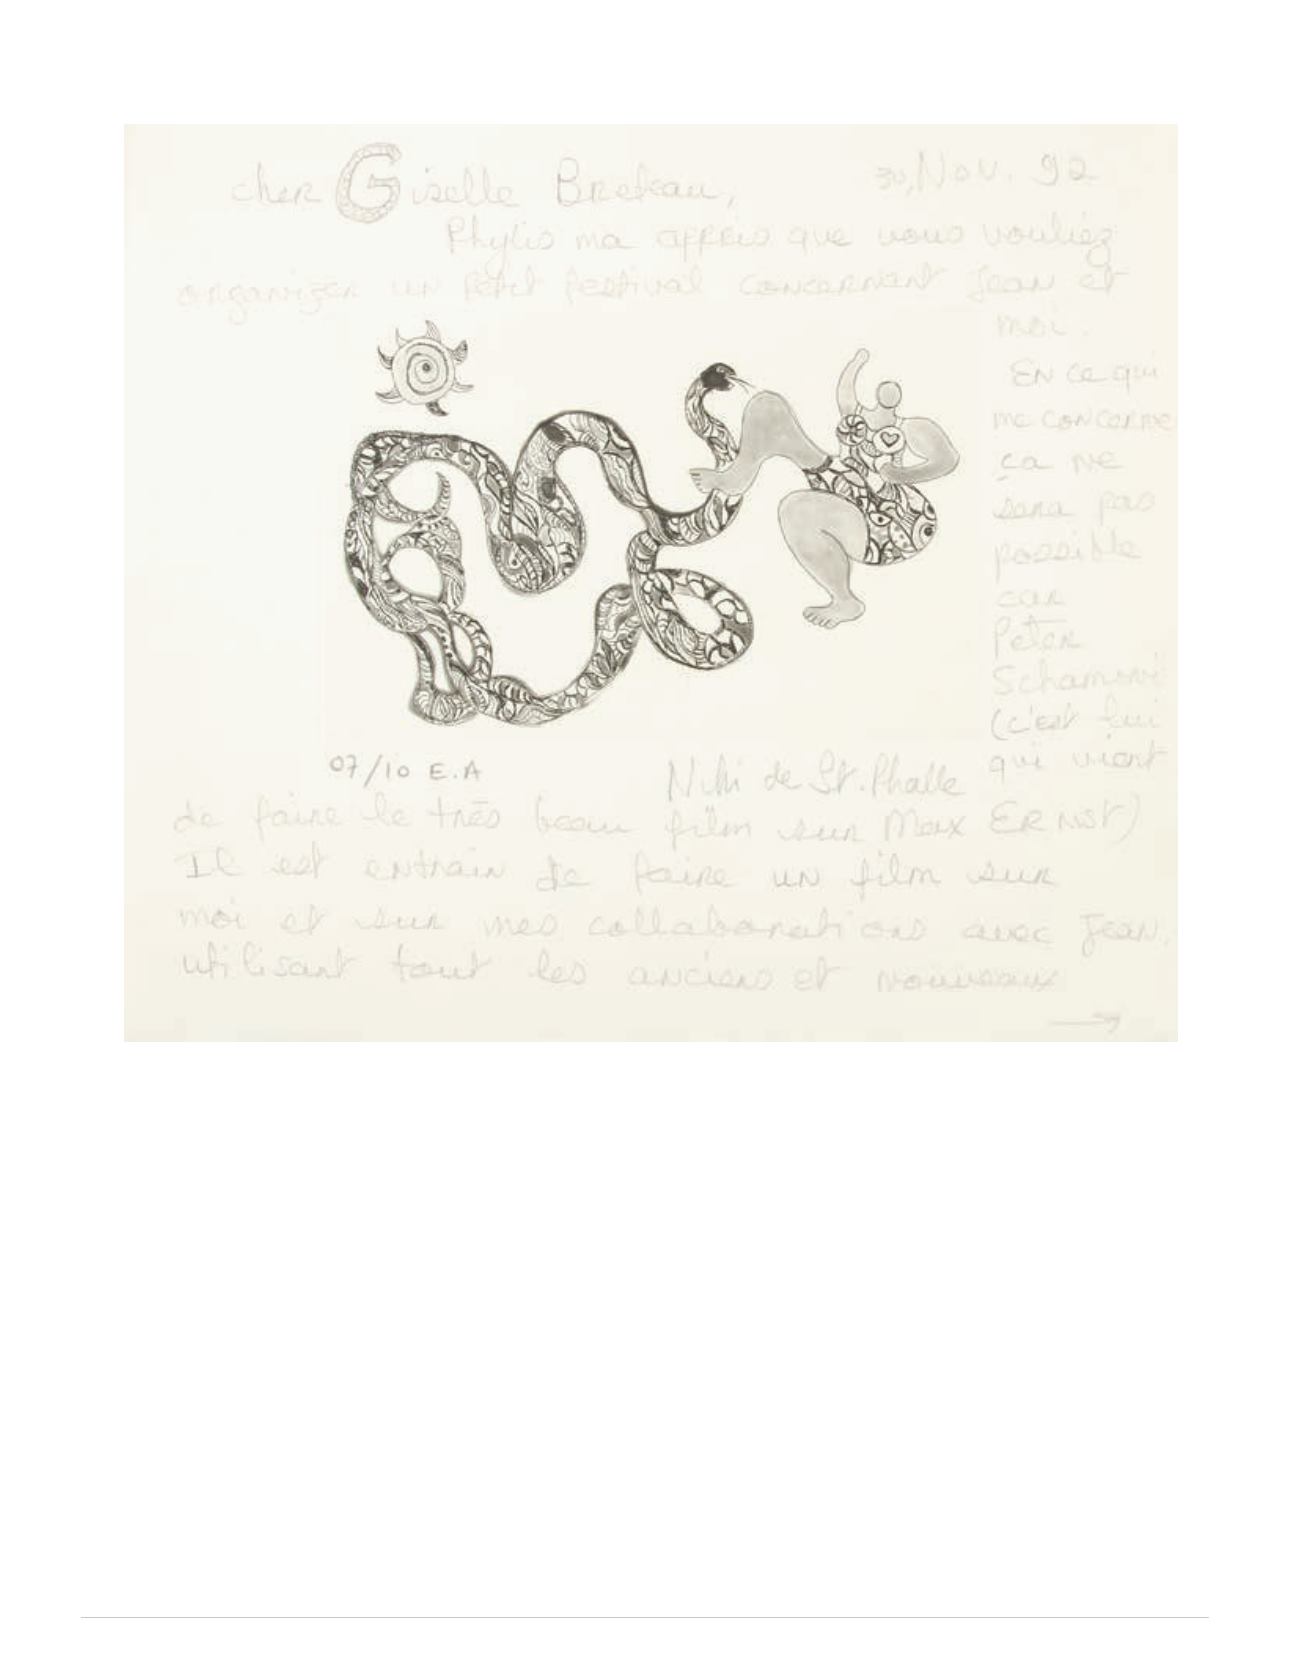 cher Giselle Breteau,
30, Nov. 92
Phylis ma appris que vous vouliez
organizer un petit festival concernant Jean et
moi.
En ce qui
me concerne
ça ne
sera pas
possible
car
Peter
Schamoni
(c'est lui
qui vient
07/10 E.A
Niki de St. Phalle
de faire le très beau film sur Max ERNST)
Il est entrain de faire un film sur
moi et sur mes collaborations avec Jean,
utilisant tout les anciens et nouveaux